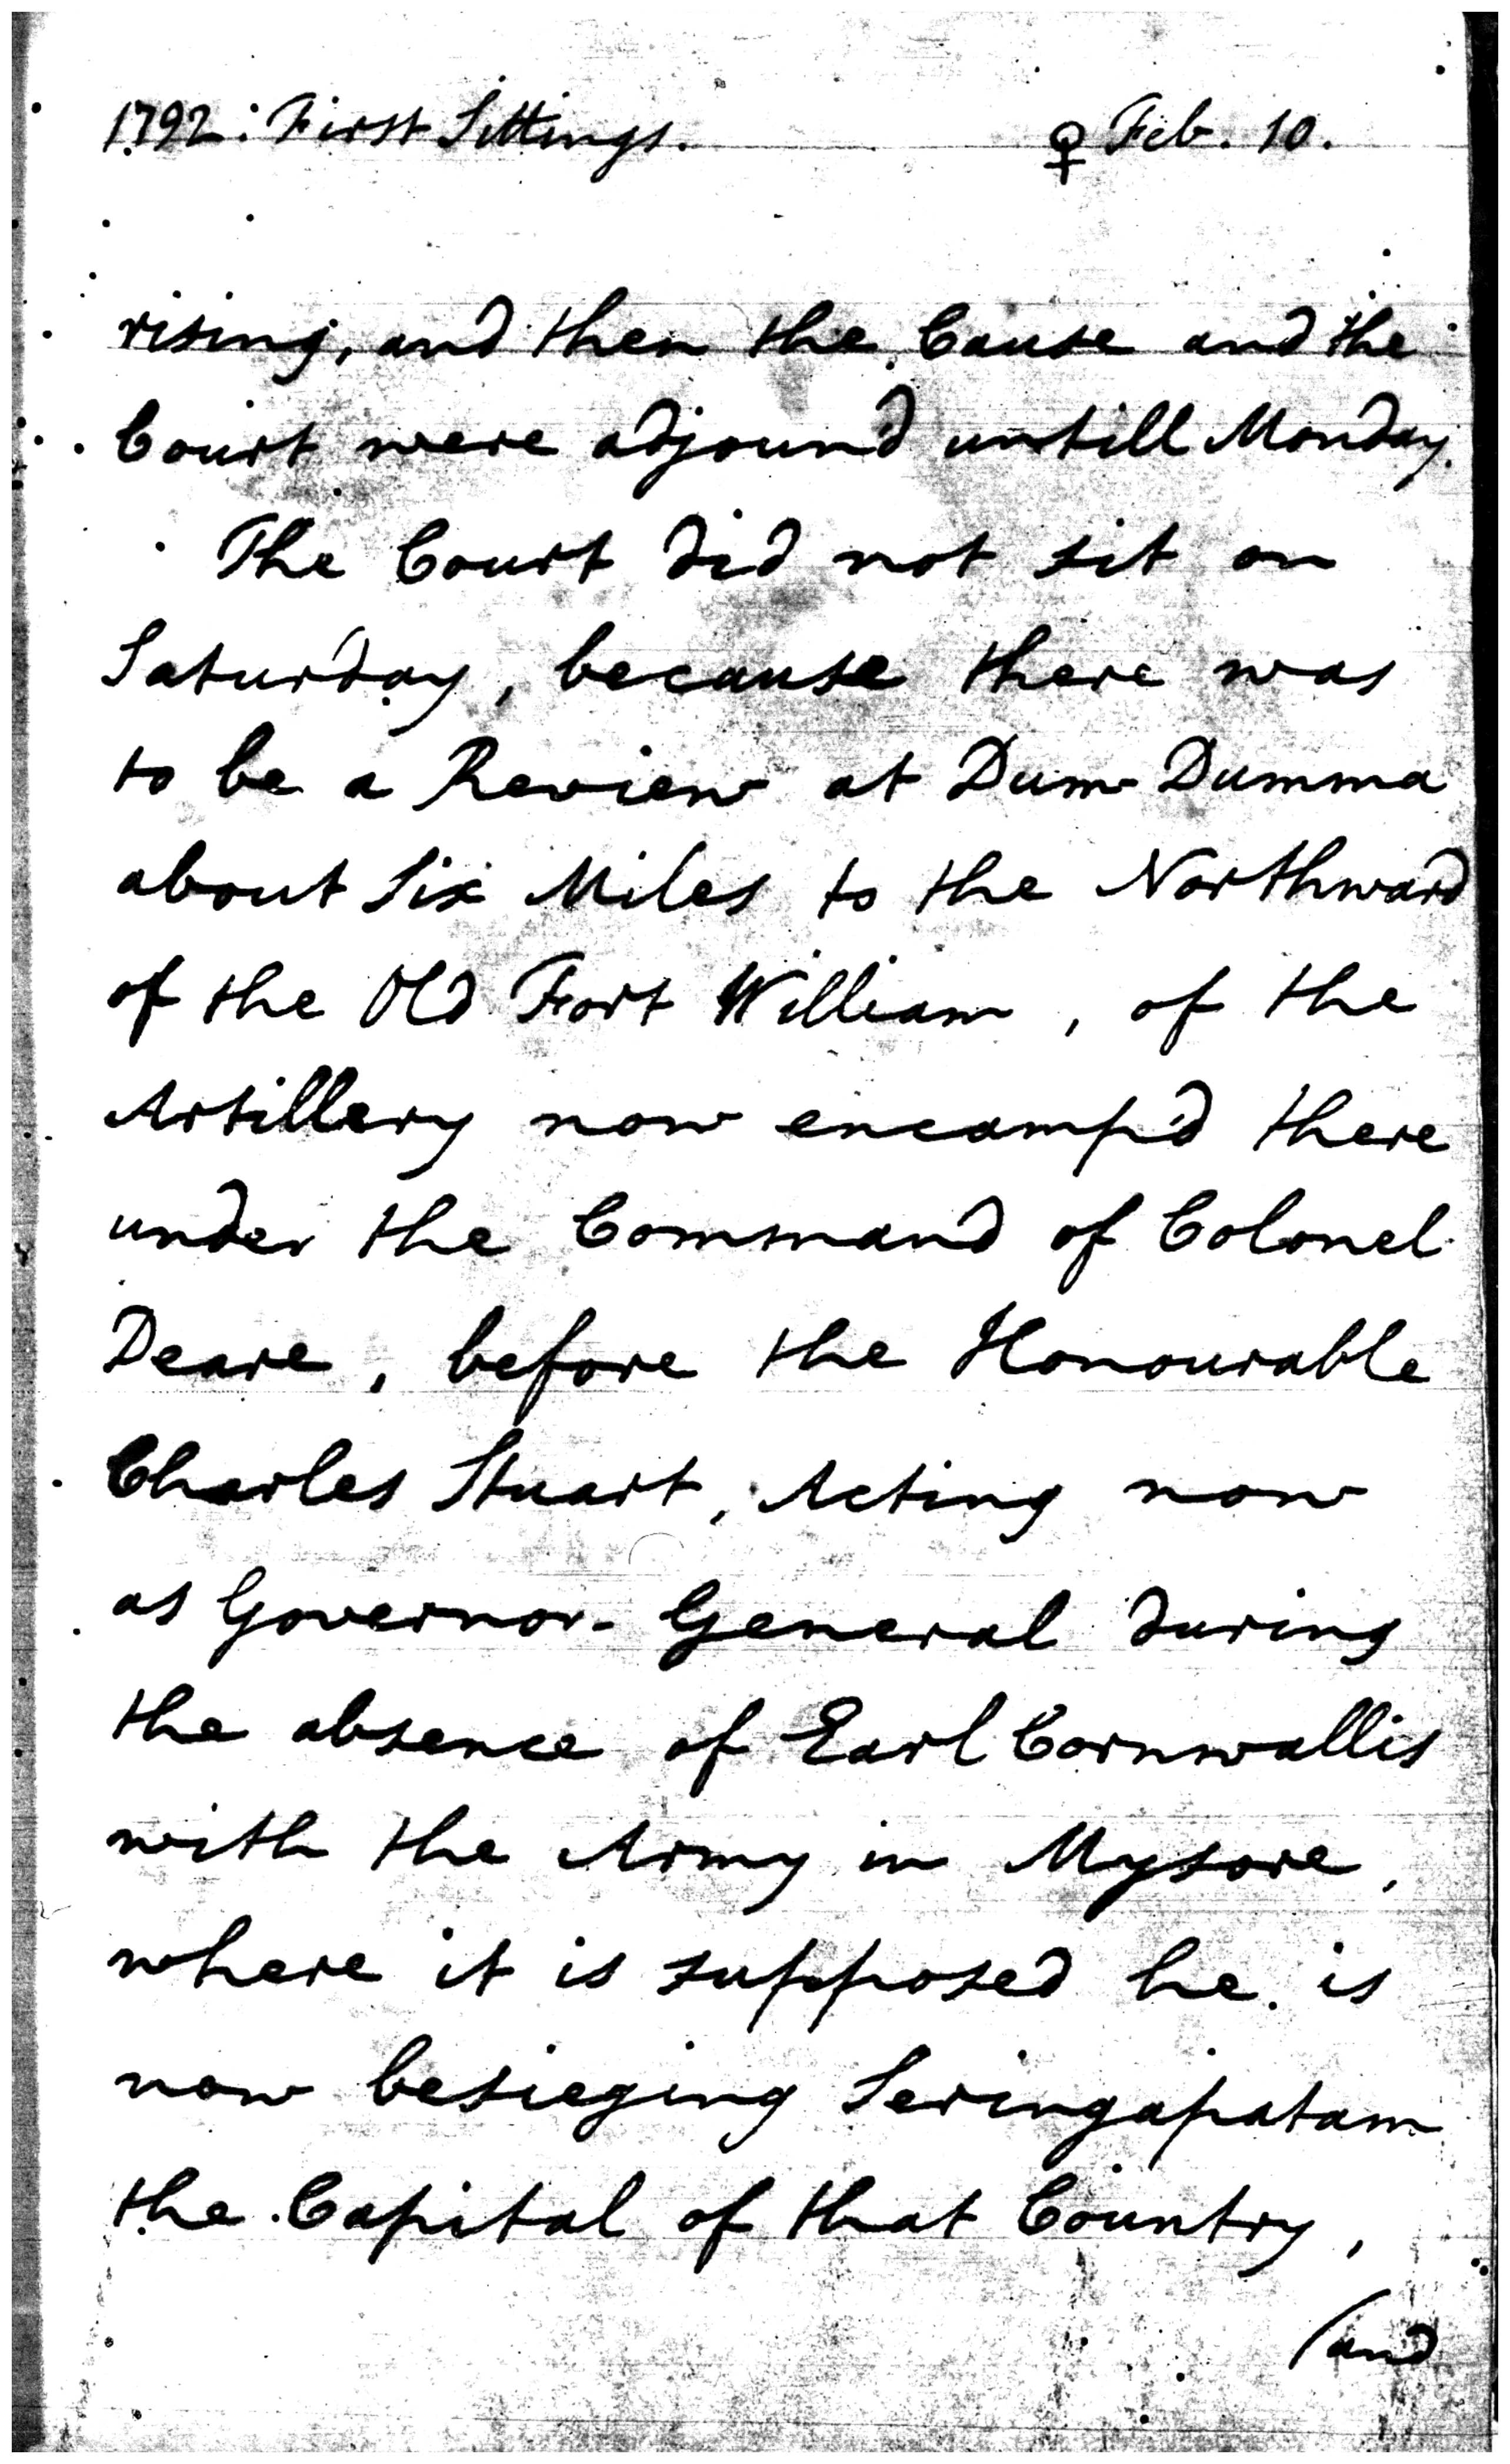 1792: First Sittings. ♀ Feb. 10.
rising, and then the Cause and the
Court were adjourn'd untill Monday.
The Court did not sit on
Saturday, because there was
to be a Review at Dum Dumma
about Six Miles to the Northward
of the Old Fort William, of the
Artillery now encamp'd there
under the Command of Colonel
Deare, before the Honourable
Charles Stuart, Acting now
as Governor-General during
the absence of Earl Cornwallis
with the Army in Mysore,
where it is supposed he is
now besieging Seringapatam
the Capital of that Country,
(and